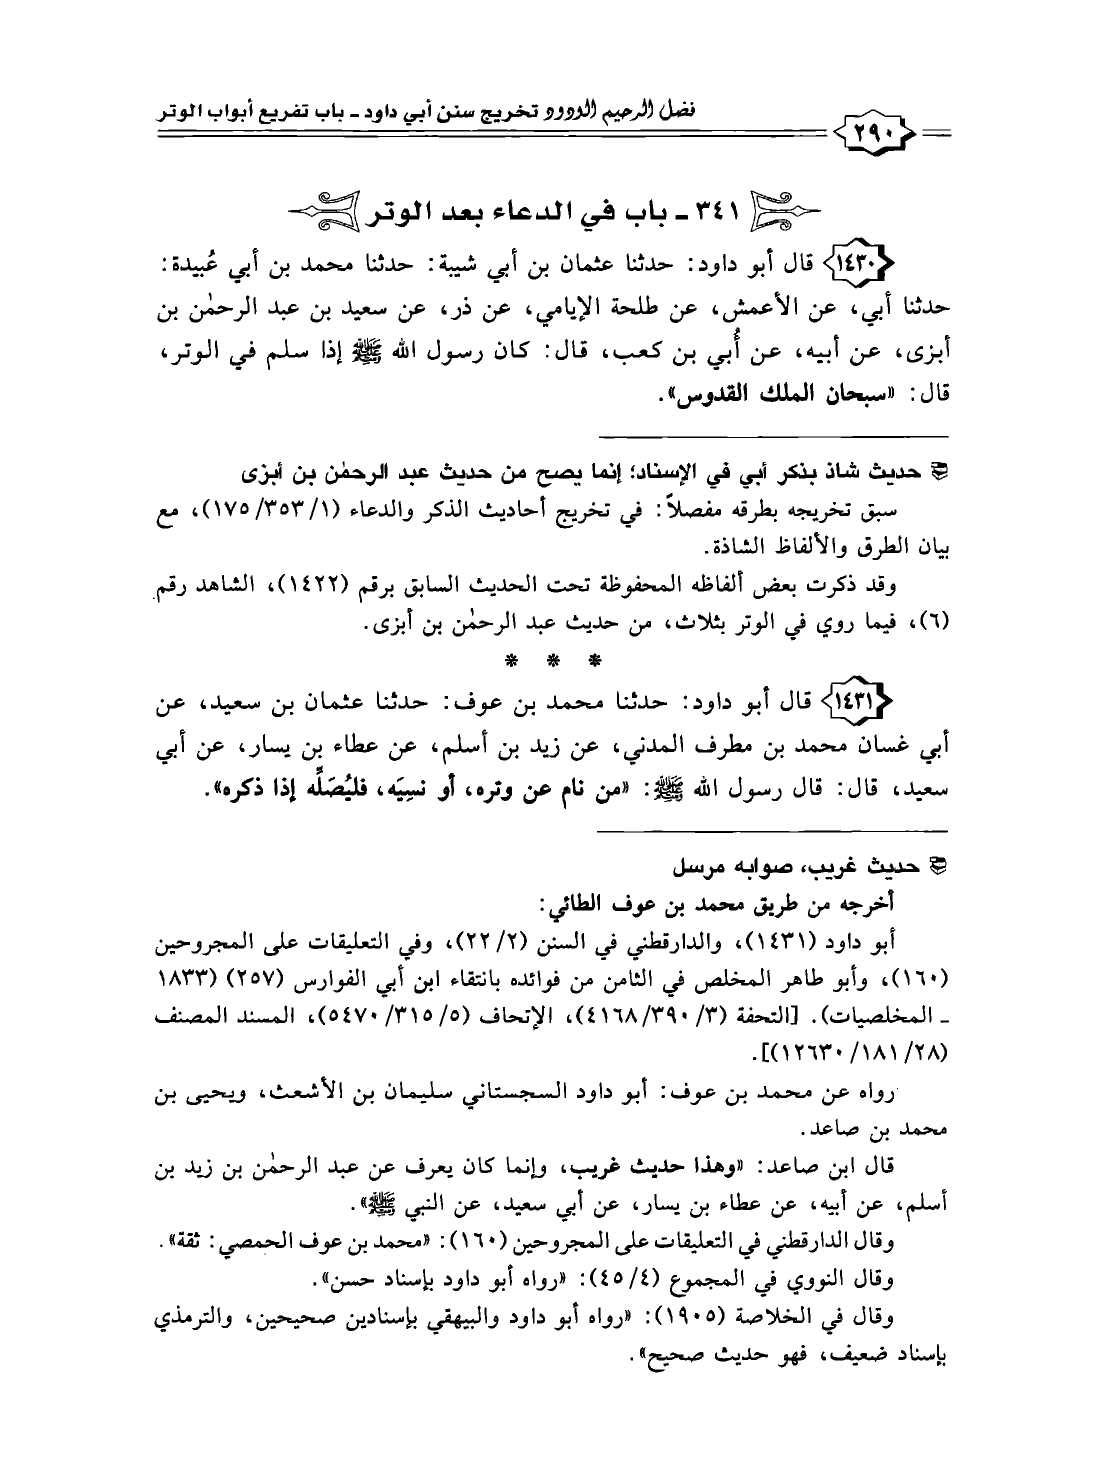 فضل الرحيم الودود تخريج سنن أبي داود ـ باب تفريع أبواب الوتر
٢٩٠
٣٤١ ـ باب في الدعاء بعد الوتر
١٤٣٠ قال أبو داود: حدثنا عثمان بن أبي شيبة: حدثنا محمد بن أبي عُبيدة:
حدثنا أبي، عن الأعمش، عن طلحة الإيامي، عن ذر، عن سعيد بن عبد الرحمٰن بن
أبزى، عن أبيه، عن أُبي بن كعب، قال: كان رسول الله ﷺ إذا سلم في الوتر،
قال: «سبحان الملك القدوس».
حديث شاذ بذكر أبي في الإسناد؛ إنما يصح من حديث عبد الرحمٰن بن أبزى
سبق تخريجه بطرقه مفصلاً: في تخريج أحاديث الذكر والدعاء (١/ ٣٥٣/ ١٧٥)، مع
بيان الطرق والألفاظ الشاذة.
وقد ذكرت بعض ألفاظه المحفوظة تحت الحديث السابق برقم (١٤٢٢)، الشاهد رقم
(٦)، فيما روي في الوتر بثلاث، من حديث عبد الرحمٰن بن أبزى.
* * *
١٤٣١ قال أبو داود: حدثنا محمد بن عوف: حدثنا عثمان بن سعيد، عن
أبي غسان محمد بن مطرف المدني، عن زيد بن أسلم، عن عطاء بن يسار، عن أبي
سعيد، قال: قال رسول الله ﷺ: «من نام عن وتره، أو نسِيَه، فليُصَلِّه إذا ذكره».
حديث غريب، صوابه مرسل
أخرجه من طريق محمد بن عوف الطائي:
أبو داود (١٤٣١)، والدارقطني في السنن (٢/ ٢٢)، وفي التعليقات على المجروحين
(١٦٠)، وأبو طاهر المخلص في الثامن من فوائده بانتقاء ابن أبي الفوارس (٢٥٧) (١٨٣٣
ـ المخلصيات). [التحفة (٣/ ٣٩٠/ ٤١٦٨)، الإتحاف (٥/ ٣١٥/ ٥٤٧٠)، المسند المصنف
(٢٨/ ١٨١/ ١٢٦٣٠)].
رواه عن محمد بن عوف: أبو داود السجستاني سليمان بن الأشعث، ويحيى بن
محمد بن صاعد.
قال ابن صاعد: «وهذا حديث غريب، وإنما كان يعرف عن عبد الرحمٰن بن زيد بن
أسلم، عن أبيه، عن عطاء بن يسار، عن أبي سعيد، عن النبي ﷺ».
وقال الدارقطني في التعليقات على المجروحين (١٦٠): «محمد بن عوف الحمصي: ثقة».
وقال النووي في المجموع (٤/ ٤٥): «رواه أبو داود بإسناد حسن».
وقال في الخلاصة (١٩٠٥): «رواه أبو داود والبيهقي بإسنادين صحيحين، والترمذي
بإسناد ضعيف، فهو حديث صحيح».